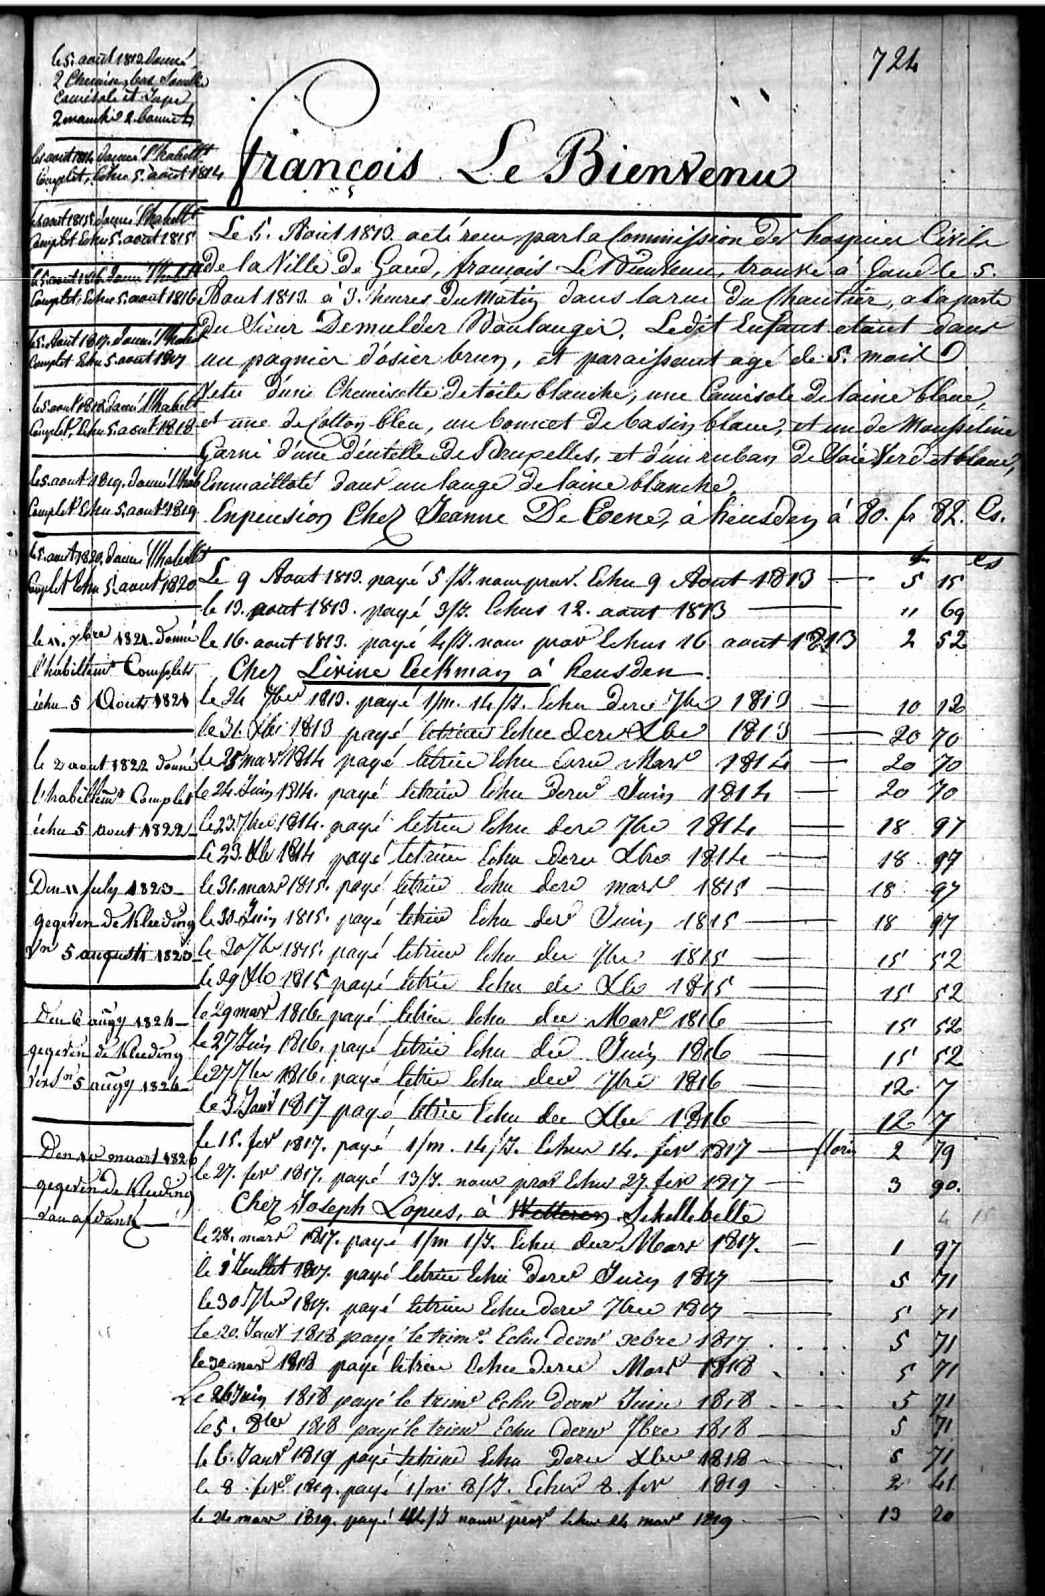 724
le 5. août 1813. donné
2 Chemises, bas
Camisole et Jupe
2 Bonnets
le 5 août 1814 donné l'habillt
Complet, Echu 5. août 1814
le 5 août 1815. donné l'habillt
Complet Echu 5. août 1815
le 5 août 1816 donné l'habillt
Complet, Echu 5 août 1816
le 5. Août 1817. donné l'habillt
Complet Echu 5 août 1817
le 5 août 1818 donné l'habillt
Complet, Echu 5. août 1818
le 5 août 1819. donné l'hab
Complet Echu 5. août 1819
le 5. août 1820. donné l'habillt
Complet Echu 5 août 1820
le 11. 7bre 1821. donné
l'habillemt Complet
échu 5 Août 1821
le 2 août 1822 donné
l'habillemt Complet
échu 5 aout 1822
Den 11 July 1823
gegeven de Kleeding
Vn 5 augusti 1823
Den 6 augy 1824
gegeven de Kleeding
5 augy 1824
Den maart 1826
gegeven de Kleeding
van afdank
françois Le Bienvenu
Le 5. Août 1813. a été recu, par la Commission des hospices Civils
de la Ville de Gand, françois Le Bienvenu, trouvé à Gand le 5.
Aout 1813. à 3. heures du Matin dans la rue du Chantier, a la porte
du Sieur Demulder Boulanger. Ledit Enfant etant dans
un pagnier d'osier brun, et paraissant agé de 5. mois
Vetu d'une Chemisette de toile blanche, une Camisole de laine bleue,
et une de Cotton bleu, un bonnet de basin blanc, et un de Mousseline
Garni d'une dentelle de Bruxelles, et d'un ruban de Soie Verd et blanc,
Emmailloté dans un lange de laine blanche,
En pension Chez Jeanne De Coene, à heusden à 80. fr 82. Cs.
fr Cs
Le 9 Aout 1813. payé 5/J. nour prov. Echu 9 Aout 1813 — 5 15
le 13. aout 1813. payé 3/J. Echus 12. aout 1813 — " 69
le 16. aout 1813. payé 4/J. nour prov Echus 16 aout 1813 2 52
Chez Livine Eeckman à heusden
le 24 7bre 1813. payé 1/m. 14/J. Echu dere 7bre 1813 — 10 12
le 31. Xbre 1813 payé letrim Echu dere Xbre 1813 — 20 70
le 25 mars 1814 payé letrim Echu dere Mars 1814 — 20 70
le 24 Juin 1814. payé letrim Echu Dere Juin 1814 — 20 70
le 23. 7bre 1814. payé letrim Echu dere 7bre 1814 — 18 97
le 23. Xbre 1814 payé letrim Echu dere Xbre 1814 — 18 97
le 31. mars 1815. payé letrim Echu dere mars 1815 — 18 97
le 30 Juin 1815. payé letrim Echu der Juin 1815 — 18 97
le 20 7bre 1815. payé letrim Echu der 7bre 1815 — 15 52
le 29 Xbre 1815 payé letrim Echu der Xbre 1815 — 15 52
le 29 mars 1816. payé letrim Echu der Mars 1816 — 15 52
le 27 Juin 1816. payé letrim Echu der Juin 1816 — 15 52
le 27 7bre 1816. payé letrim Echu der 7bre 1816 — 12 7
le 3. Janv 1817 payé letrim Echu der Xbre 1816 — 12 7
le 15. fevr 1817. payé 1/m. 14/J. Echus 14. fevr 1817 — florin 2 79
le 27. fevr 1817. payé 13/J. nour prov Echus 27. fevr 1817 — 3 90.
Chez Joseph Lopus, à Wetteren Schellebelle
4 15
le 28. mars 1817. payé 1/m 1/J. Echu dere Mars 1817. — 1 97
le 1 Juillet 1817. payé letrim Echu dere Juin 1817 — 5 71
le 30 7bre 1817. payé letrim Echu dere 7bre 1817 — 5 71
le 20. Janv 1818 payé le trimr. Echu dernr xbre 1817 . . . . 5 71
le 30 mars 1818 payé letrim Echu dere Mars 1818 . . . 5 71
Le 26 Juin 1818 payé le trimr Echu dernr Juin 1818 - - - - 5 71
le 5. 8bre 1818 payé le trimr Echu dernr 7bre 1818 — 5 71
le 6. Janvr 1819 payé letrim Echu Dere Xbre 1818 - - - - 5 71
le 8. fevr. 1819. payé 1/m 8/J. Echus 8. fevr 1819 . - - 2 41
le 24 mars 1819. payé 44/J nour prov Echu 24 mars 1819 - — - 13 20